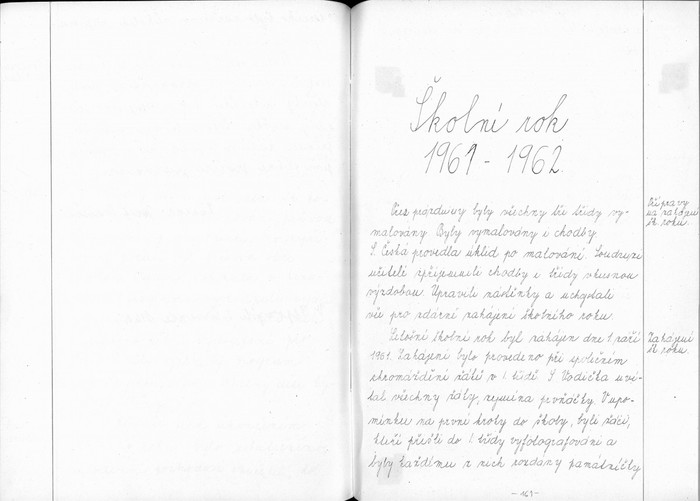 Školní rok
1961 - 1962.
Přes prázdniny byly všechny tři třídy vy-
malovány. Byly vymalovány i chodby.
S. Česká provedla úklid po malování. Soudruzi
učitelé zpříjemnili chodby i třídy vkusnou
výzdobou. Upravili nástěnky a uchystali
vše pro zdárné zahájení školního roku.
Letošní školní rok byl zahájen dne 1. září
1961. Zahájení bylo provedeno při společném
shromáždění žáků v I. třídě. S. Vodička uví-
tal všechny žáky, zejména prvňáčky. V upo-
mínku na první kroky do školy, byli žáci,
kteří přišli do I. třídy vyfotografováni a
byly každému z nich rozdány památníčky
Přípravy
na zahájení
šk. roku.
Zahájení
šk. roku.
- 161 -